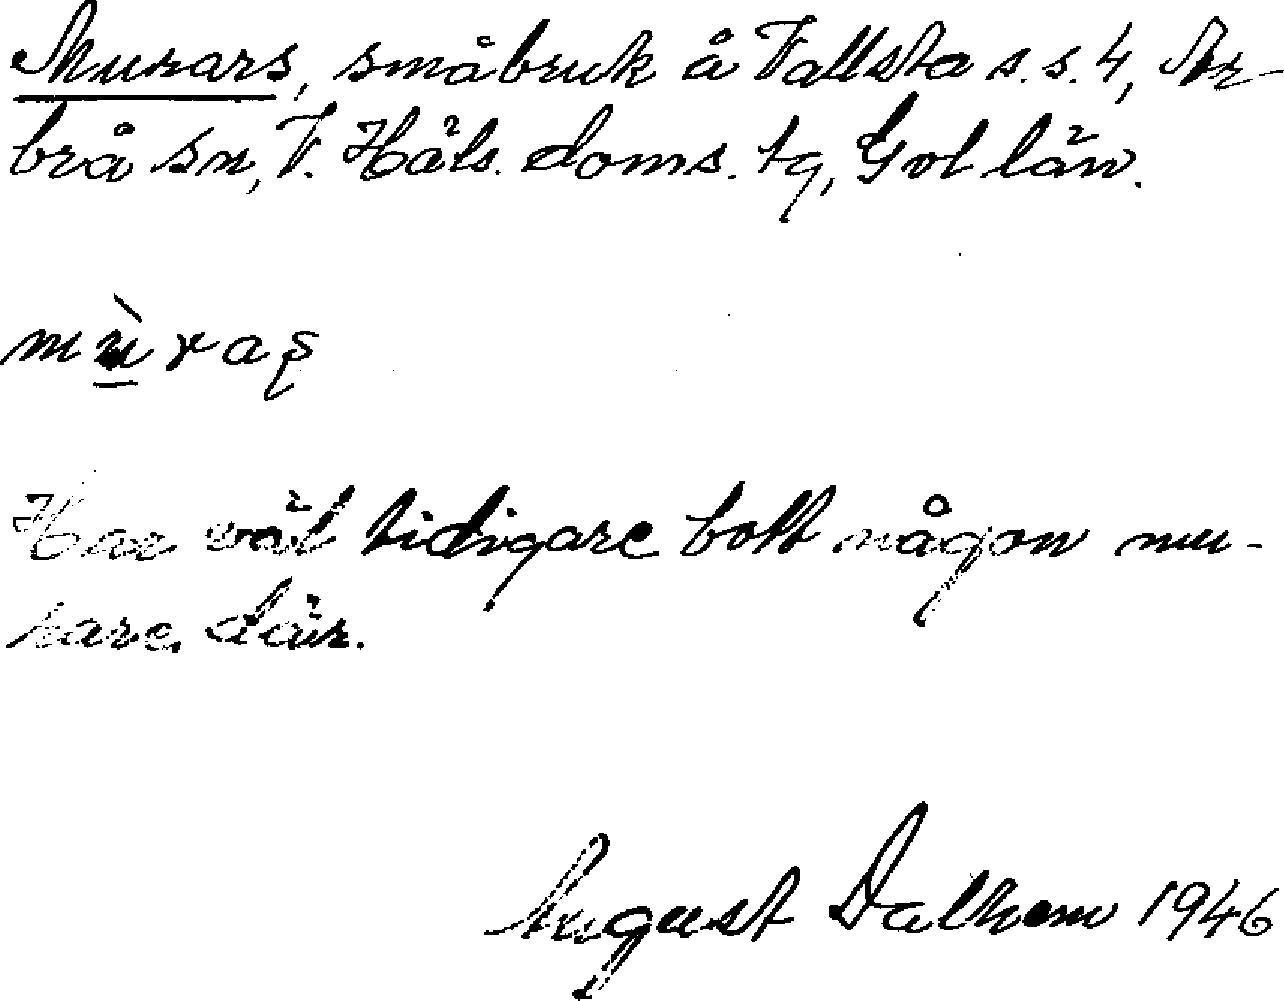 Murars, småbruk å Vallsta s.s. 4, Ar-
brå sn, V. Häls. doms. tg, Gvl län.
mùraş
Har väl tidigare bott någon mu-
rare där.
August Dalhem 1946